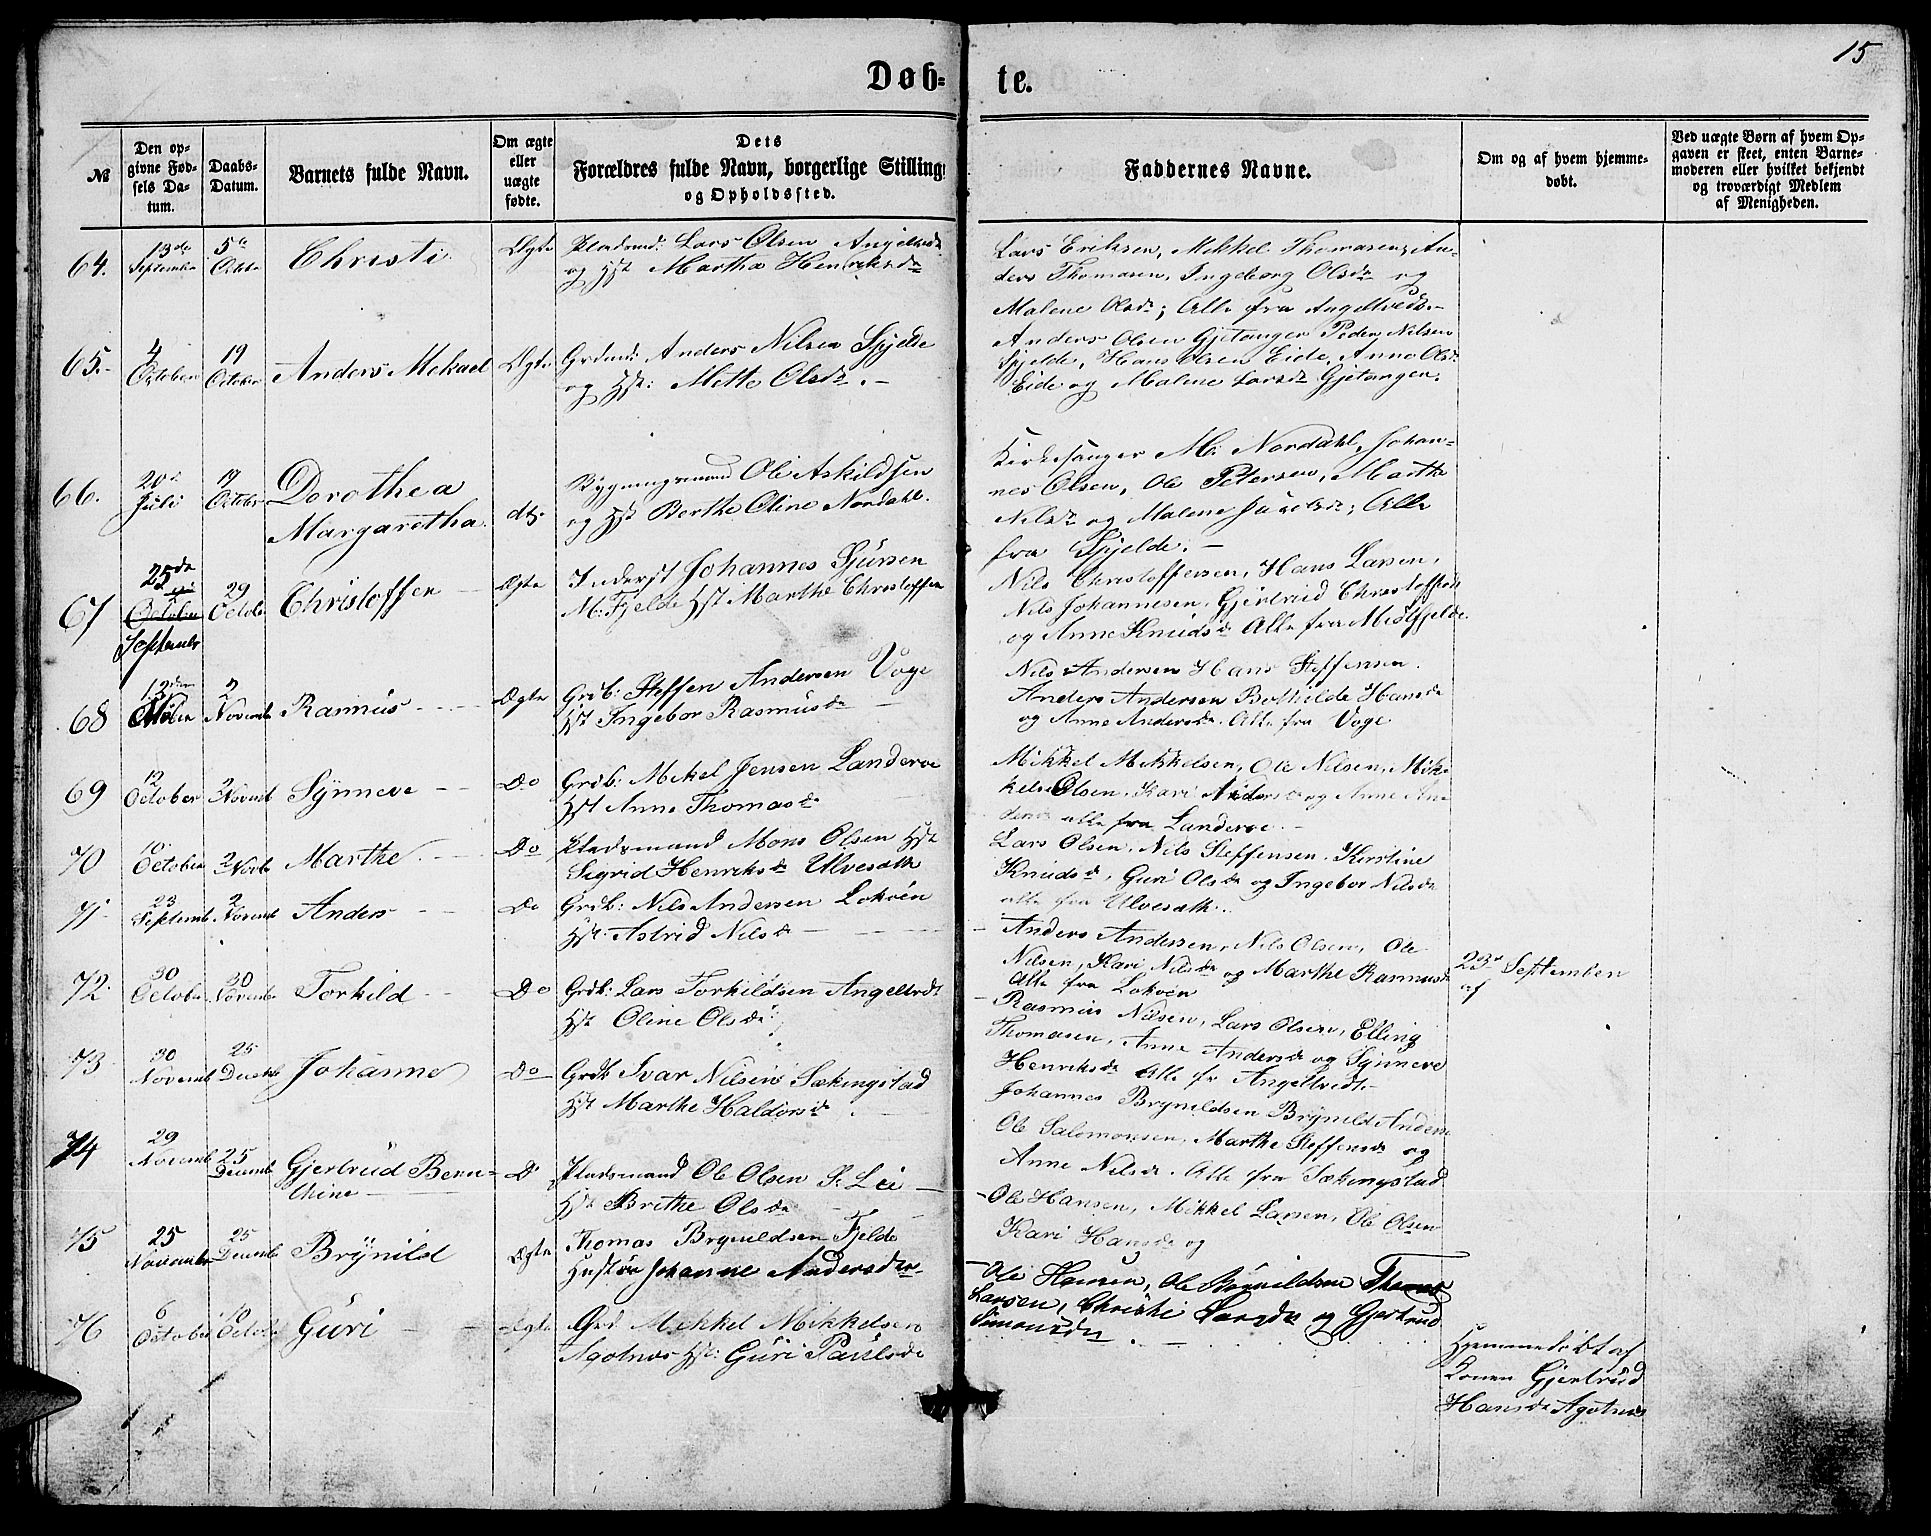 15
Døb= te.
№
Den op-
givne Fød-
sels Da-
tum.
Daabs-
Datum.
Barnets fulde Navn.
Om ægte
eller
uægte
fødte.
Dets
Forældres fulde Navn, borgerlige Stilling
og Opholdssted.
Faddernes Navne.
Om og af hvem hjemme-
døbt.
Ved uægte Børn af hvem Op-
gaven er skeet, enten Barne-
moderen eller hvilket bekjendt
og troværdigt Medlem
af Menigheden.
64.
13de
September
5te
Octbr
Christi
Ægte
Pladsmd: Lars Olsen Angeltvedt
og Hst Martha Henriksdr
Lars Eriksen, Mikkel Thomasen, An-
ders Thomasen, Ingeborg Olsdr og
Malene Olsdr; Alle fra Angeltvedt.-
65.-
4
October
19
October
Anders Mekael
Ægte
Grdmd: Anders Nilsen Spjelde
og Hst: Mette Olsdr.-
Anders Olsen Gjetanger Peder Nilsen
Spjelde, Hans Olsen Eide, Anne Olsdr
Eide og Malene Larsdr Gjetangen.
66.
20de
Juli
19
October
Dorothea
Margaretha
dto
Bygningsmand Ole Askildsen
og Hst Berthe Oline Nordahl.
Kirkesanger M. Nordahl, Johan-
nes Olsen, Ole Petersen, Marthe
Nilsdr og Malene; Alle
fra Spjelde.-
67
25de
October
September
29
October
Christoffer
Ægte
Inderst Johannes Sjursen
M. Fjelde Hst Marthe Christoffer
Nils Christoffersen, Hans Larsen,
Nils Johannesen, Gjertrud Christoffed
og Anne Knudsdr Alle fra Midtfjelde
68
12
2
Novemb
Rasmus
Ægte
Grdb: Steffen Andersen Voge
Hst Ingebor Rasmusdr
Nils Andersen Hans Steffensen.
Anders Andersen Bothilde Hansdr
og Anne Andersdr. Alle fra Voge
69
12
October
2
Novemb
Synneve
Do
Grdb: Mekel Jensen Landerøe
Hst Anne Thomasdr
Mikkel Mikkelsen, Ole Nilsen, Mik-
kel Olsen, Kari Andersdr og Anne An-
dersdr alle fra Landerøe.-
70
10
October
2
Novb
Marthe
Do
Pladsmand Mons Olsen Hst
Sigrid Henriksdr Ulvesæth
Lars Olsen, Nils Steffensen, Kirstine
Knudsdr, Guri Olsdr og Ingebor Nilsdr
alle fra Ulvesæth.
71.
23
Septemb
2
Novemb
Anders
Do
Grdb: Nils Andersen Lokøen
Hst: Astrid Nilsdr
Anders Andersen, Nils Olsen, Ole
Nilsen, Kari Nilsdr og Marthe Rasmusdr
Alle fra Lokøen
23de September
af
72
30
October
30
Novembr
Torkild
Do
Grdb: Lars Torkildsen Angeltvdt
Hst Oline Olsdr
- Rasmus Nilsen, Lars Olsen, Elling
Thomasen, Anne Andersdr og Synneve
Henriksdr Alle fr Angeltvedt-
73
30
Novemb
25
Decemb
Johanne
Do
Grdb Ivar Nilsen Sækingstad
Hst Marthe Haldorsdr
Johannes Brynildsen Brynild Anders
Ole Salomonsen, Marthe Steffensdr og
Anne Nilsdr. Alle fra Sækingstad
74
29
Novemb
25
Decemb
Gjertrud Bern-
thine
Do
Pladsmand Ole Olsen P. Lie
Hst Brithe Olsdr
- Ole Hansen, Mikkel Larsen, Ole Olsen
Kari Hansdr og
75
25
November
25
Decemb
Brynild
Ægte
Thomas Brynildsen Fjelde
Hustru Johanne Andersdr.
- Ole Hansen, Ole Brynildsen Thomas
Larsen, Christi Larsdr og Gjertrud
Simonsdr.
76
6
October
10
Octobr
Guri
Ægte
Grd Mekkel Mikkelsen
Agotnes Hst: Guri Paulsdr
Hjemmedøbt af
Konen Gjertrud
Hansdr Agotnes